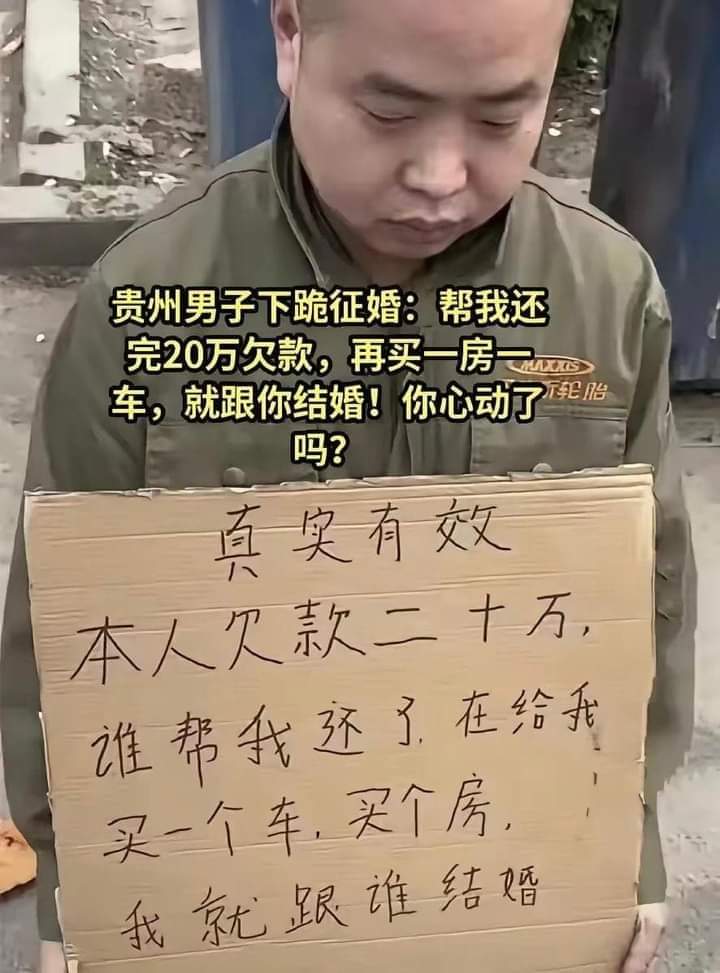 贵州男子下跪征婚：帮我还
完20万欠款，再买一房一
车，就跟你结婚！你心动了
吗？
MAXXIS
轮胎
真实有效
本人欠款二十万，
谁帮我还了，在给我
买一个车，买个房，
我就跟谁结婚